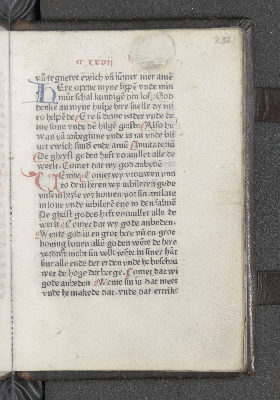 236
cc xxvij
vñ regneret ewich vñ ũmer mer amẽ
Here opene myne lippẽ vnde min
munt schal kundigẽ din lof God
denke an myne hulpe here snelle dy mi
to helpẽde Ere si deme vader vnde de
me sone vnde dẽ hilgẽ geiste Also he
was an anbeginne vnde is nu vnde blift
ewich sund ende amẽ Inuitatoriũ
De gheist godes heft voruullet alle de
werlt Comet dat wy god anbedẽ
Venite Comet wy vrouwen vns
to dem heren wy iubileren gode
vnsem heyle wy komen vor sin antlate
in loue vnde iubilerẽ eme in den salmẽ
De gheist godes heft voruullet alle de
werlt Comet dat wy gode anbeden
Wente god is en grot here vñ en grot
koning bouen alle goden wẽte de here
vordrift nicht sin volk wẽte in siner hãt
sint alle ende der erden vnde he beschou
wet de hoge der berge Comet dat wi
gode anbeden Wente sin is dat meer
vnde he makede dat vnde dat ertrike